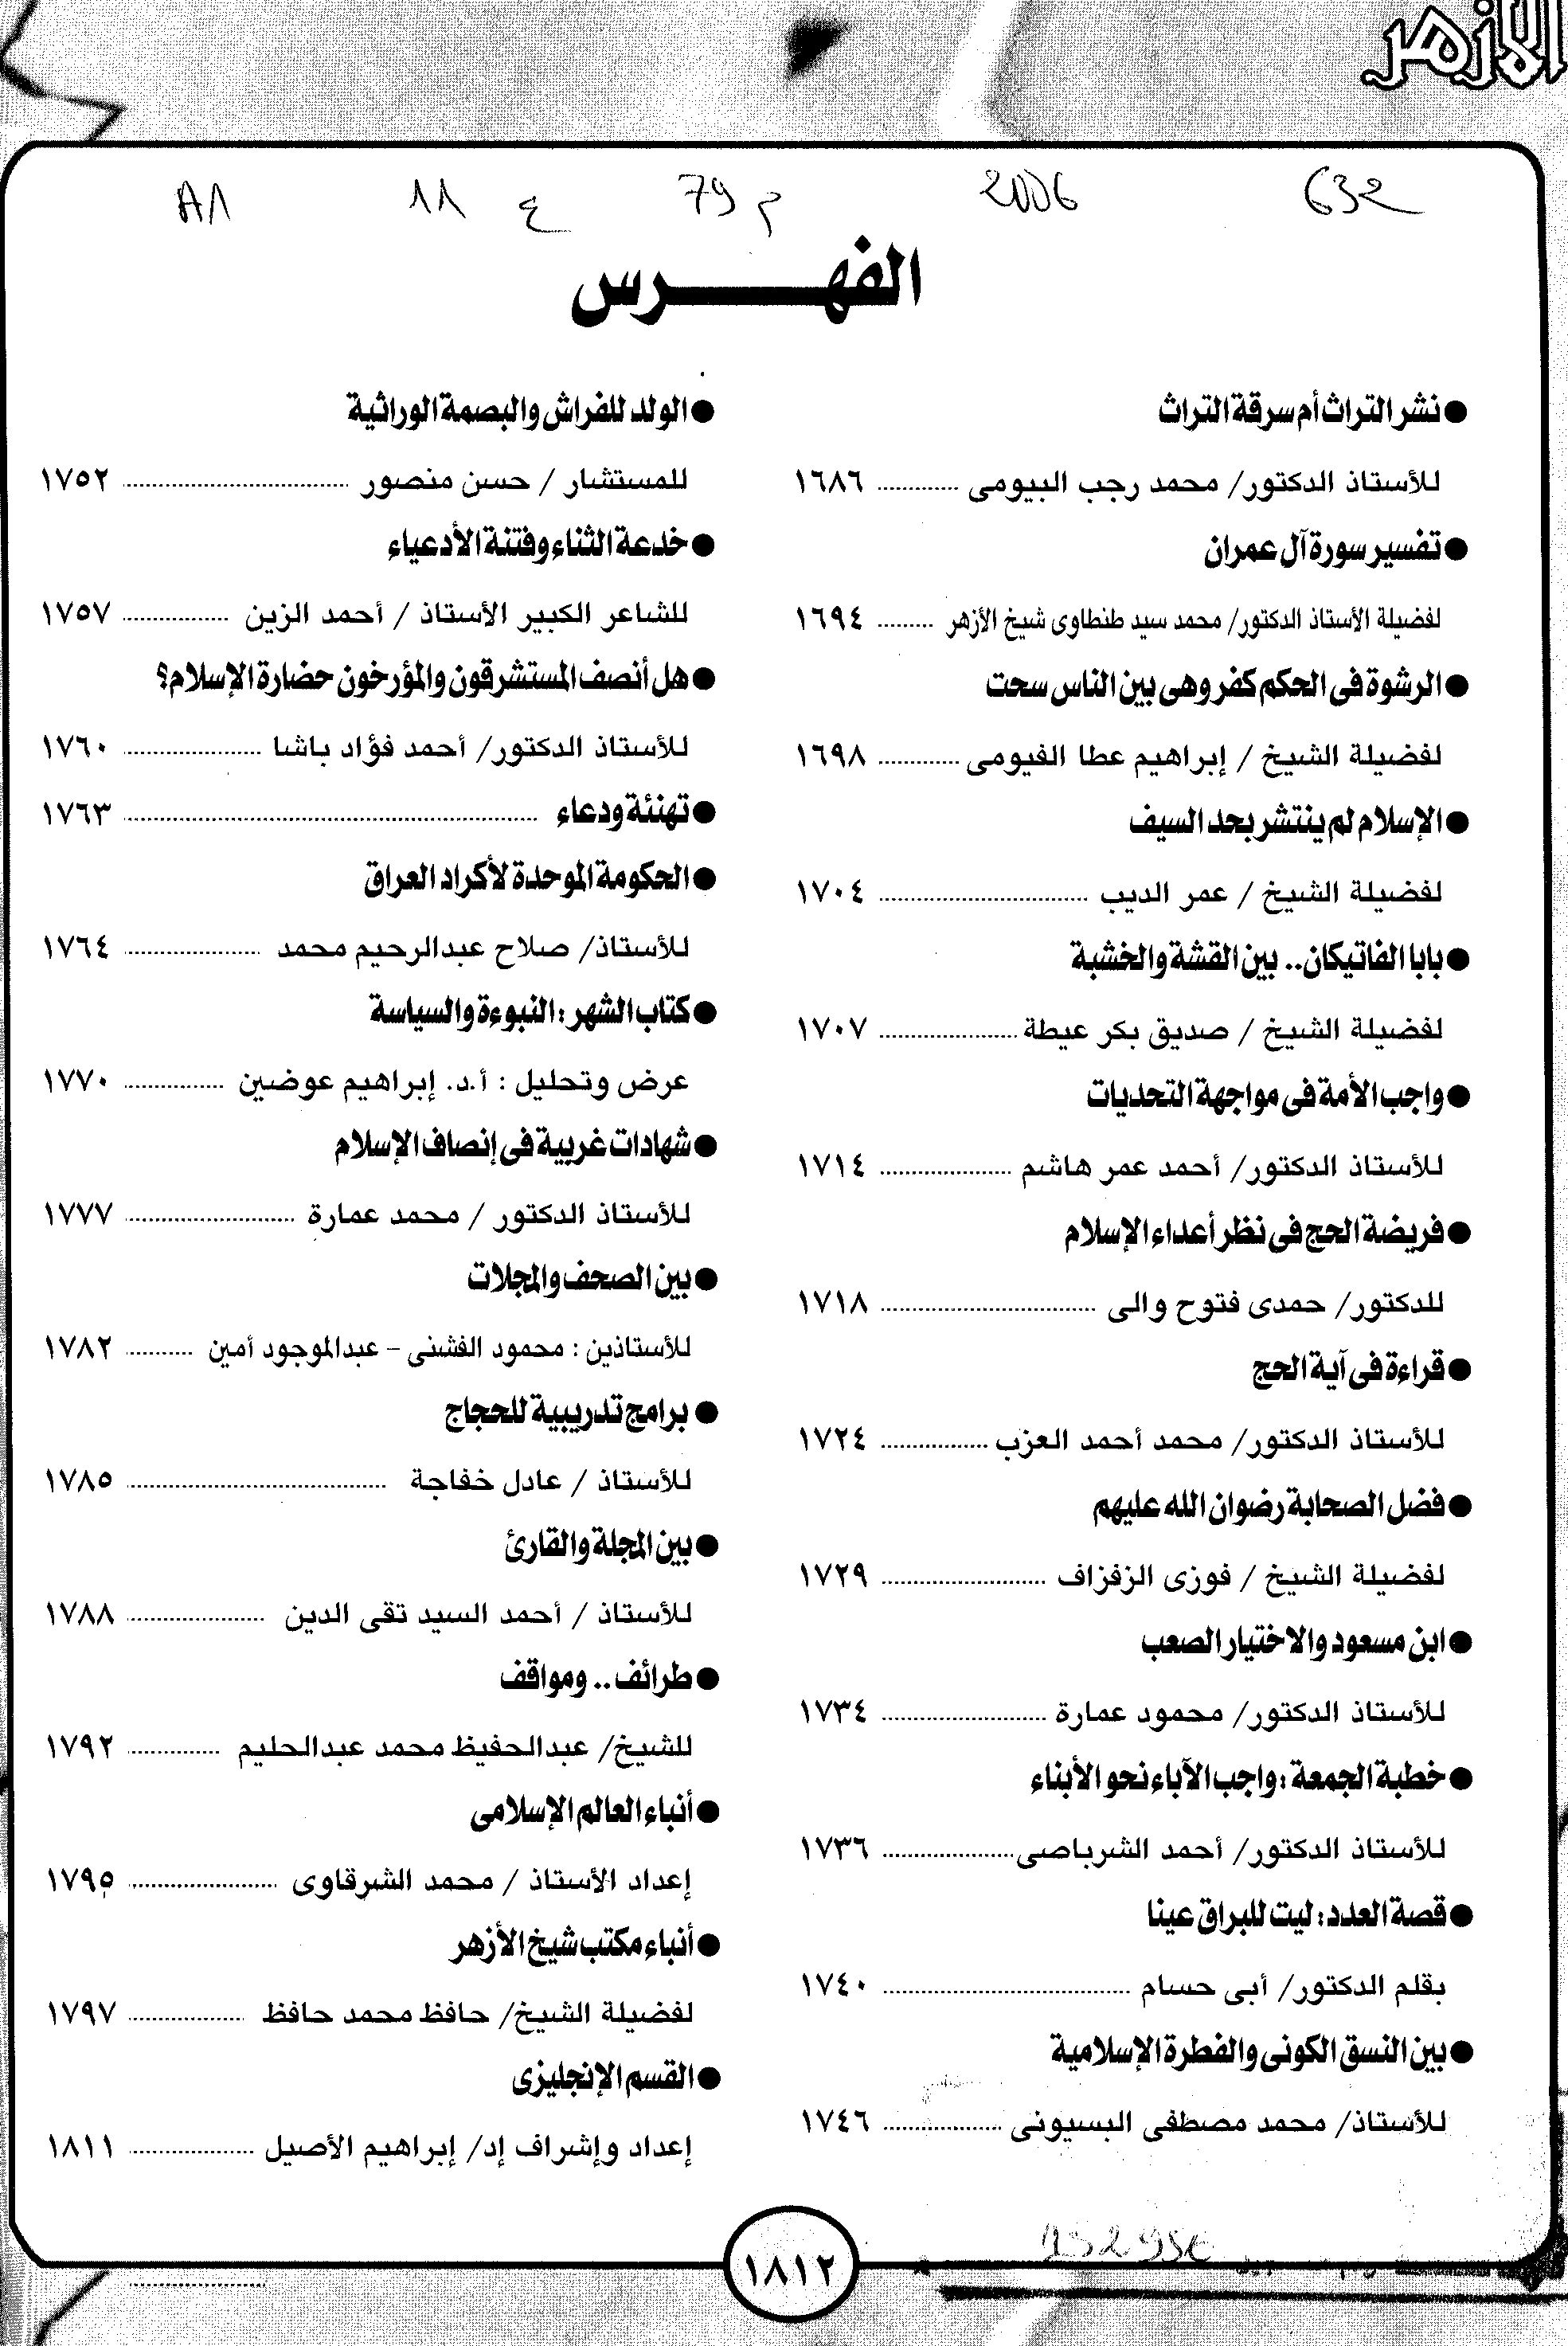 الأزهر
632 2006 م 79 ع 11
الفهرس
● نشر التراث أم سرقة التراث
للأستاذ الدكتور/ محمد رجب البيومى ........... ١٦٨٦
● تفسير سورة آل عمران
لفضيلة الأستاذ الدكتور/ محمد سيد طنطاوى شيخ الأزهر ........ ١٦٩٤
● الرشوة فى الحكم كفر وهى بين الناس سحت
لفضيلة الشيخ / إبراهيم عطا الفيومى ........... ١٦٩٨
● الإسلام لم ينتشر بحد السيف
لفضيلة الشيخ / عمر الديب ........... ١٧٠٤
● بابا الفاتيكان.. بين القشة والخشبة
لفضيلة الشيخ / صديق بكر عيطة ........... ١٧٠٧
● واجب الأمة فى مواجهة التحديات
للأستاذ الدكتور/ أحمد عمر هاشم ........... ١٧١٤
● فريضة الحج فى نظر أعداء الإسلام
للدكتور/ حمدى فتوح والى ........... ١٧١٨
● قراءة فى آية الحج
للأستاذ الدكتور/ محمد أحمد العزب ........... ١٧٢٤
● فضل الصحابة رضوان الله عليهم
لفضيلة الشيخ / فوزى الزفزاف ........... ١٧٢٩
● ابن مسعود والاختيار الصعب
للأستاذ الدكتور/ محمود عمارة ........... ١٧٣٤
● خطبة الجمعة : واجب الآباء نحو الأبناء
للأستاذ الدكتور/ أحمد الشرباصى ........... ١٧٣٦
● قصة العدد : ليت للبراق عينا
بقلم الدكتور/ أبى حسام ........... ١٧٤٠
● بين النسق الكونى والفطرة الإسلامية
للأستاذ/ محمد مصطفى البسيونى ........... ١٧٤٦
● الولد للفراش والبصمة الوراثية
للمستشار / حسن منصور ........... ١٧٥٢
● خدعة الثناء وفتنة الأدعياء
للشاعر الكبير الأستاذ / أحمد الزين ........... ١٧٥٧
● هل أنصف المستشرقون والمؤرخون حضارة الإسلام؟
للأستاذ الدكتور/ أحمد فؤاد باشا ........... ١٧٦٠
● تهنئة ودعاء ........... ١٧٦٣
● الحكومة الموحدة لأكراد العراق
للأستاذ/ صلاح عبدالرحيم محمد ........... ١٧٦٤
● كتاب الشهر : النبوءة والسياسة
عرض وتحليل : أ.د. إبراهيم عوضين ........... ١٧٧٠
● شهادات غربية فى إنصاف الإسلام
للأستاذ الدكتور / محمد عمارة ........... ١٧٧٧
● بين الصحف والمجلات
للأستاذين : محمود الفشنى - عبدالموجود أمين ........... ١٧٨٢
● برامج تدريبية للحجاج
للأستاذ / عادل خفاجة ........... ١٧٨٥
● بين المجلة والقارئ
للأستاذ / أحمد السيد تقى الدين ........... ١٧٨٨
● طرائف .. ومواقف
للشيخ/ عبدالحفيظ محمد عبدالحليم ........... ١٧٩٢
● أنباء العالم الإسلامى
إعداد الأستاذ / محمد الشرقاوى ........... ١٧٩٥
● أنباء مكتب شيخ الأزهر
لفضيلة الشيخ/ حافظ محمد حافظ ........... ١٧٩٧
● القسم الإنجليزى
إعداد وإشراف إد/ إبراهيم الأصيل ........... ١٨١١
١٨١٢